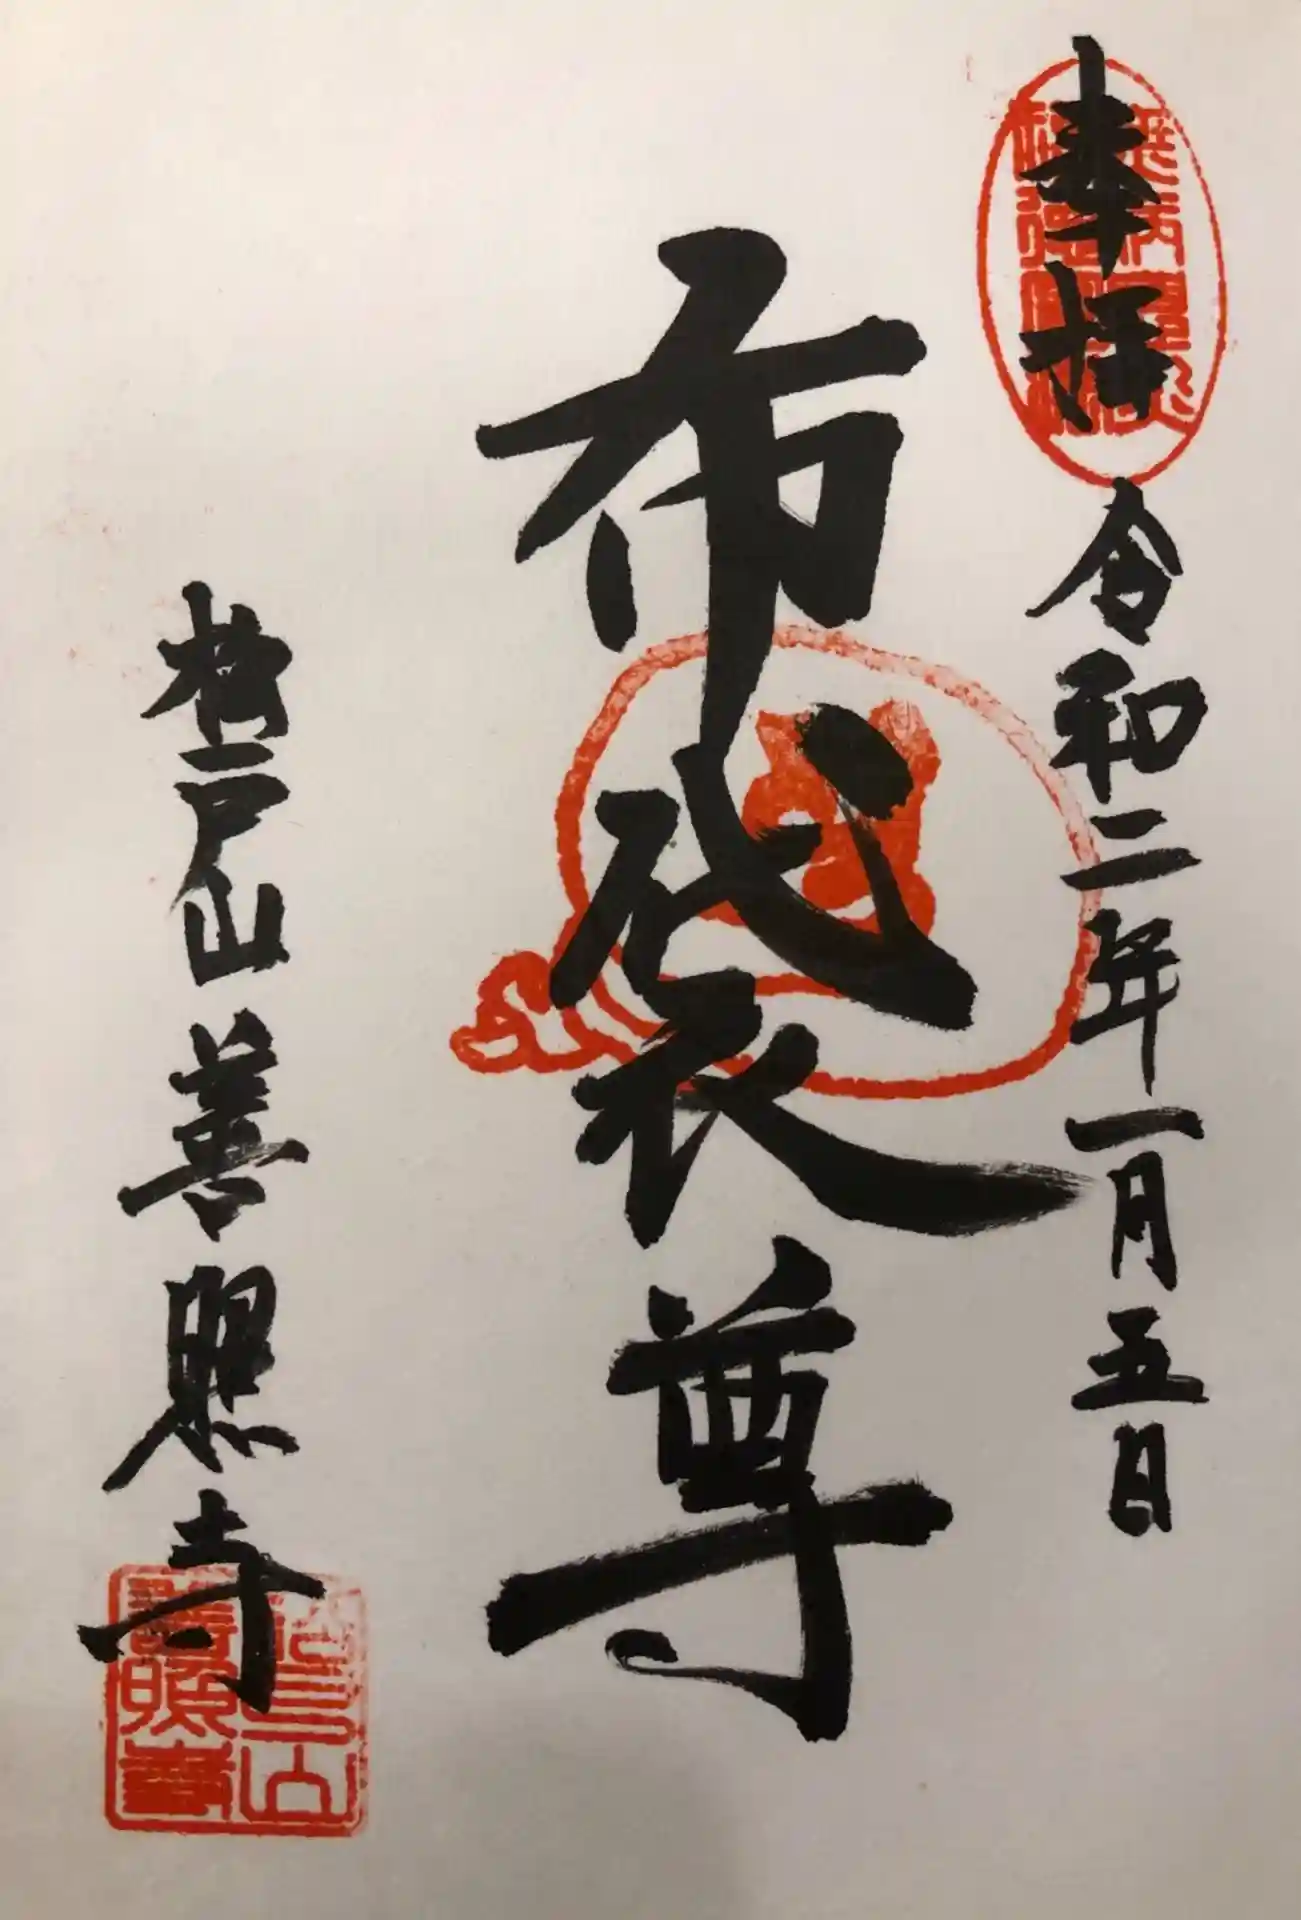 奉拝
令和二年一月五日
布袋尊
戸山善照寺
善照寺